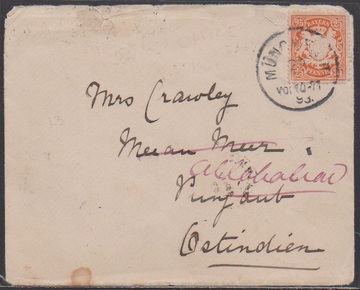 BAYERN
MÜNCHEN
Vor. 10-11
93.
Mrs Crawley
Meean Meer
Allahabad
Punjaub
Ostindien